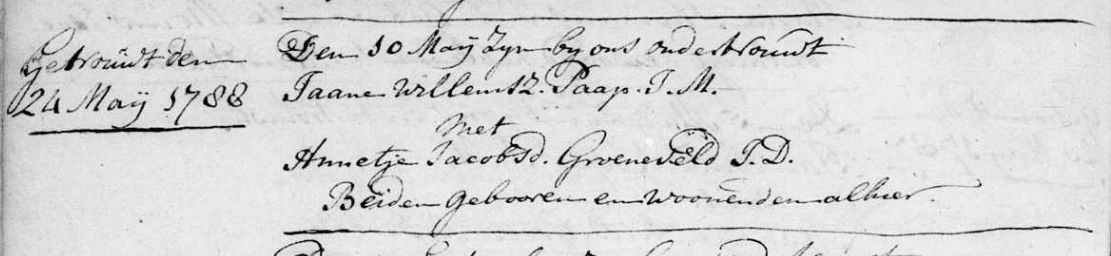 Getrouwt den
24 Maÿ 1788
Den 10 Maÿ Zyn by ons ondertrouwt
Jaane Willemsz. Paap. J. M.
Met
Annetje Jacobsd. Groeneveld J. D.
Beiden gebooren en woonende alhier.